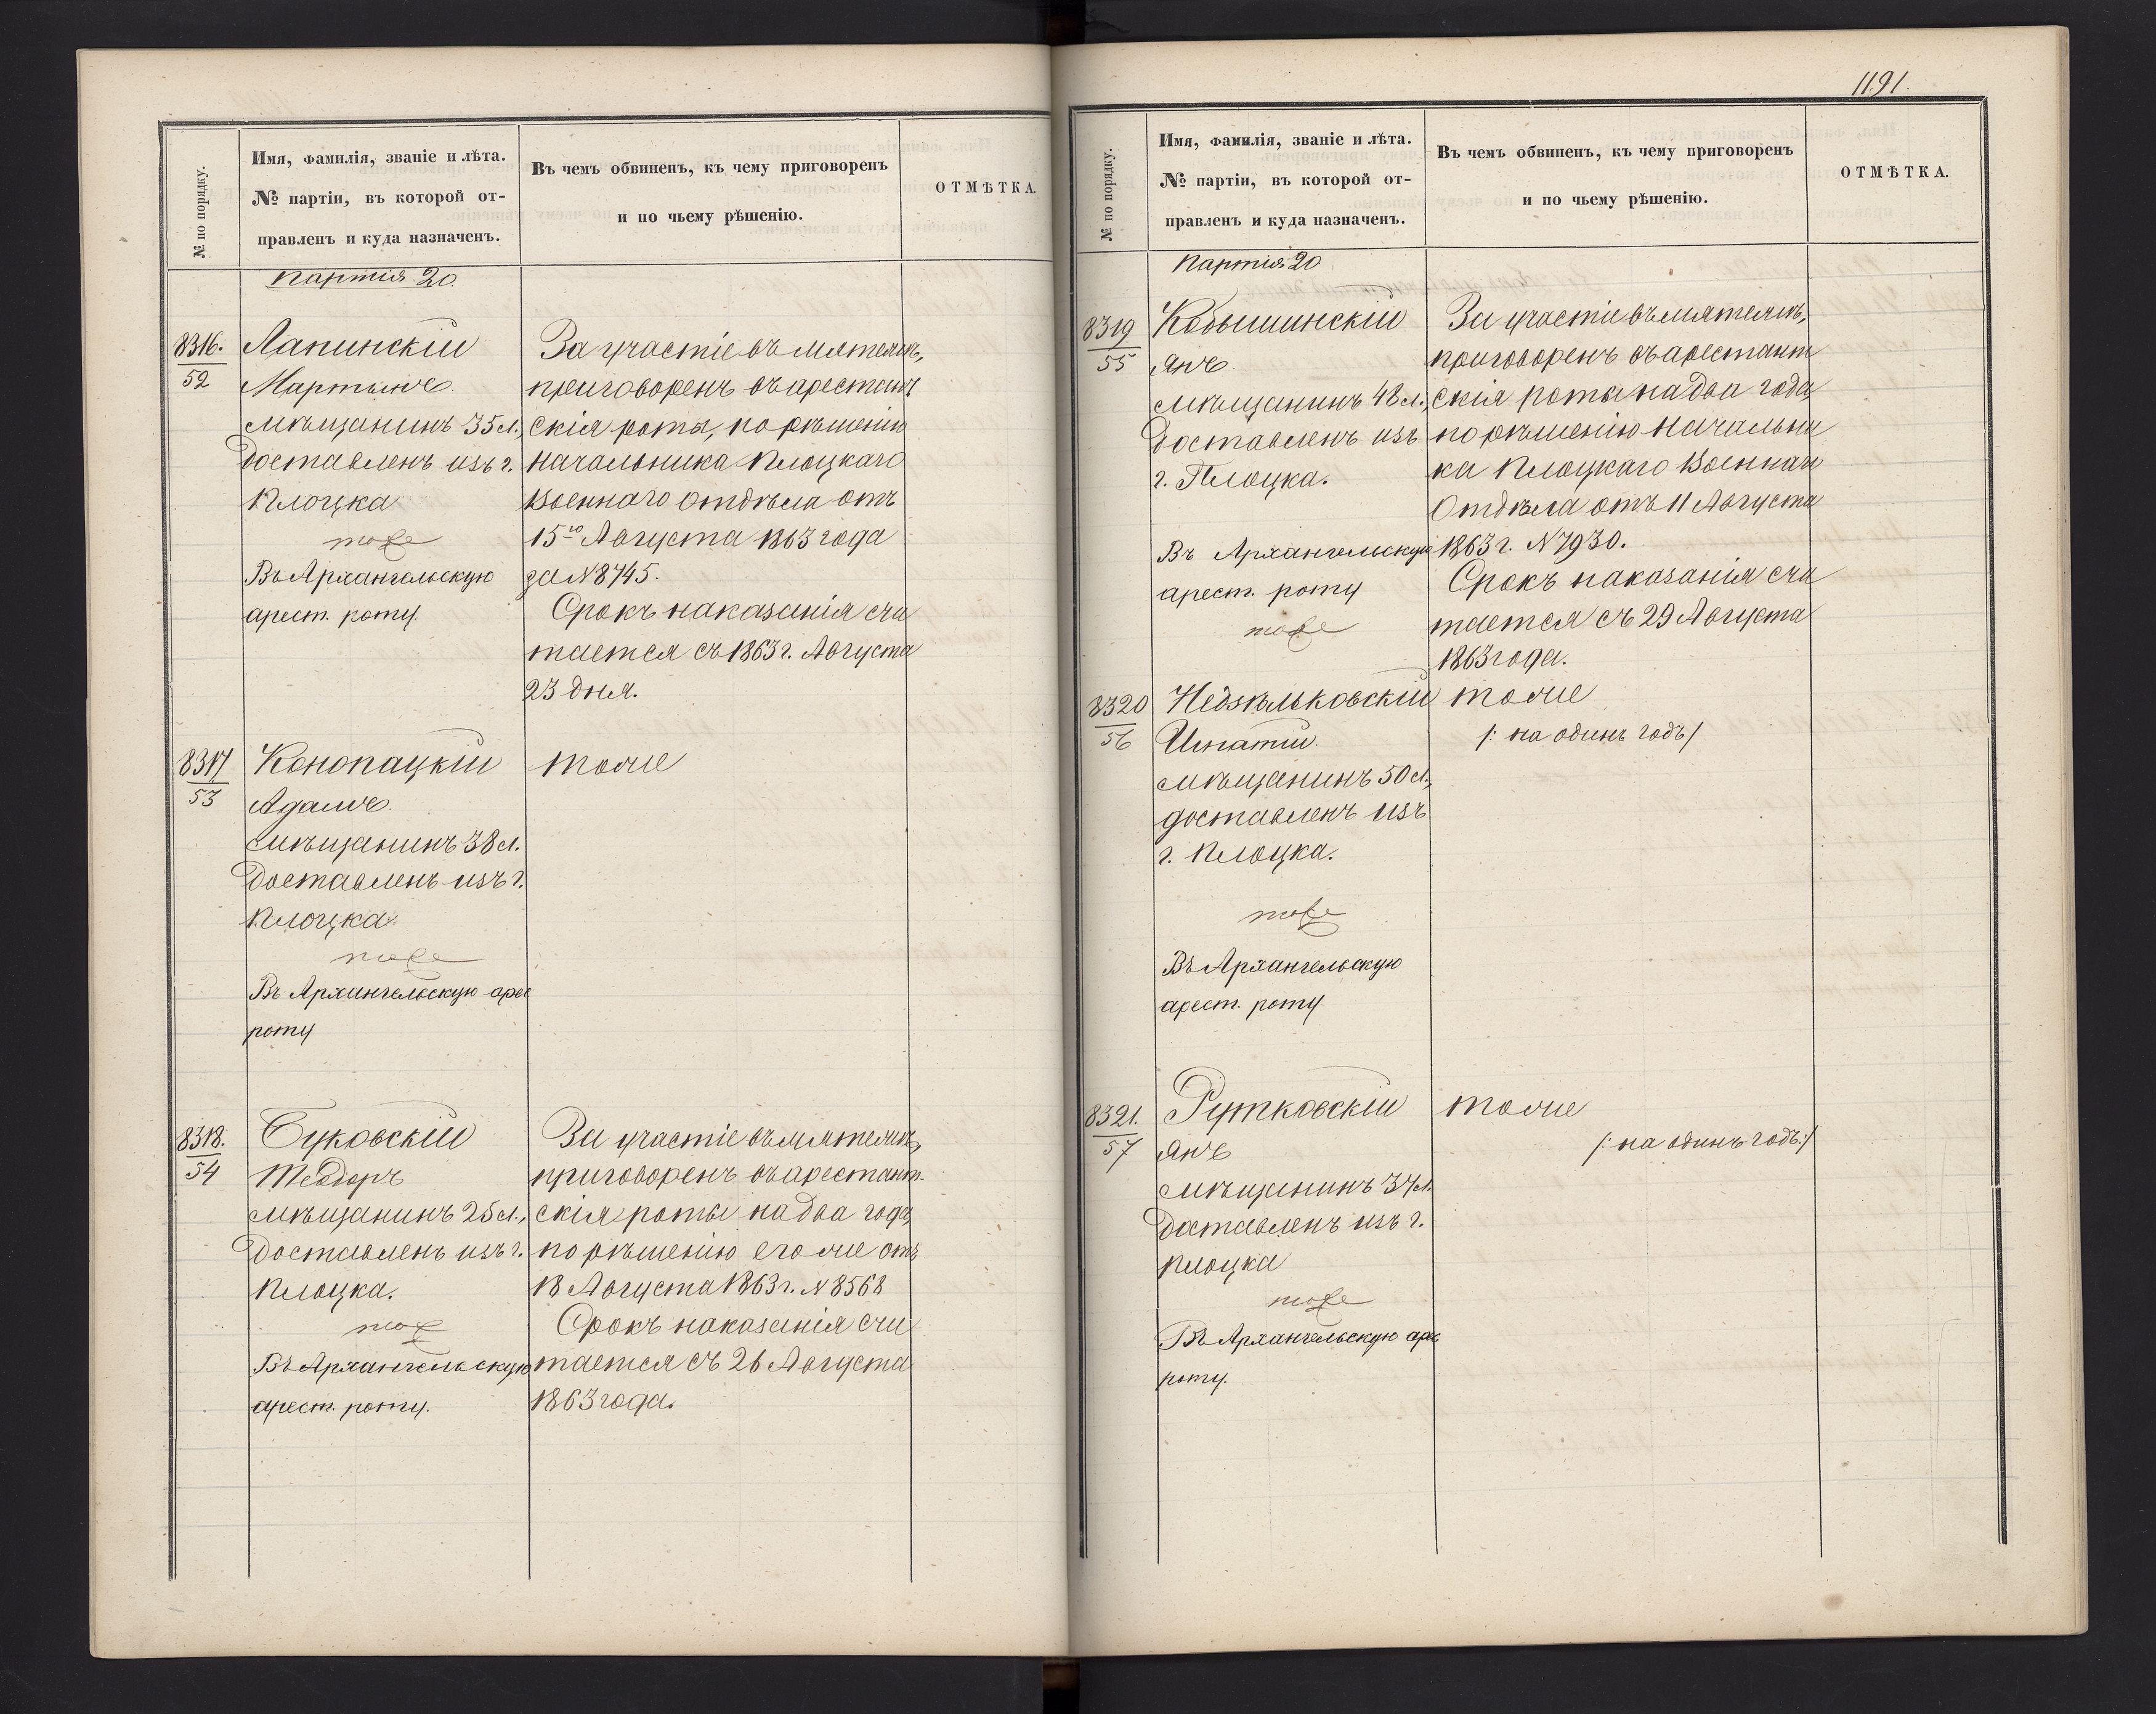 № по порядку.
Имя, фамилія, званіе и лѣта.
№ партіи, въ которой от-
правленъ и куда назначенъ.
Въ чемъ обвиненъ, къ чему приговоренъ
и по чьему рѣшенію.
ОТМѢТКА.
партия 20.
8316.
52
Лапинскій
Мартынъ.
мѣщанинъ 35 л.,
доставленъ изъ г.
Плоцка
тоже
Въ Архангельскую
арест. роту
За участіе въ мятежѣ,
приговоренъ въ арестант
скія роты, по рѣшенію
начальника Плоцкаго
Военнаго Отдѣла отъ
15го Августа 1863 года
за N 8745.
Срокъ наказанія счи
тается съ 1863 г. Августа
23 дня.
8317
53
Конопацкій
Адамъ.
мѣщанинъ 38 л.
доставленъ изъ г.
Плоцка
тоже
Въ Архангельскую арес
роту
тоже
8318.
54
Буковскій
Теодоръ
мѣщанинъ 25 л.,
доставленъ изъ г.
Плоцка.
тоже
Въ Архангельскую
арест. роту.
За участіе въ мятежѣ,
приговоренъ въ арестант-
скія роты на два года,
по рѣшенію его же отъ
18 Августа 1863 г. N 8568
Срокъ наказанія счи
тается съ 26 Августа
1863 года.
1191.
№ по порядку.
Имя, фамилія, званіе и лѣта.
№ партіи, въ которой от-
правленъ и куда назначенъ.
Въ чемъ обвиненъ, къ чему приговоренъ
и по чьему рѣшенію.
ОТМѢТКА.
партия 20
8319
55
Кобышинскій
Янъ.
мѣщанинъ 48 л.,
доставленъ изъ
г. Плоцка.
Въ Архангельскую
арест. роту
тоже
За участіе въ мятежѣ,
приговоренъ въ арестант
скія роты на два года,
по рѣшенію Начальни
ка Плоцкаго Военнаго
Отдѣла отъ 11 Августа
1863 г. N 7930.
Срокъ наказанія счи
тается съ 29 Августа
1863 года.
8320
56
Недзѣльковскій
Игнатій.
мѣщанинъ 50 л.,
доставленъ изъ
г. Плоцка.
тоже
Въ Архангельскую
арест. роту
тоже
/: на одинъ годъ /
8321.
57
Рутковскій
Янъ
мѣщанинъ 34 л.
доставленъ изъ г.
Плоцка
тоже
Въ Архангельскую арес
роту.
тоже
/: на одинъ годъ :/